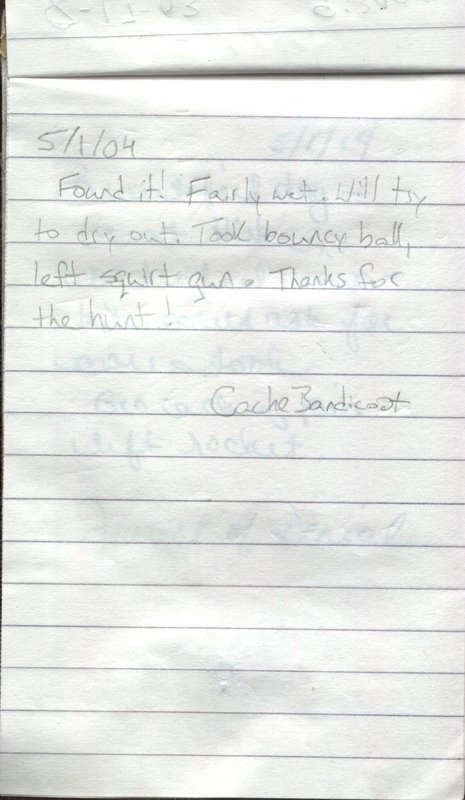 5/1/04
Found it! Fairly wet. Will try
to dry out. Took bouncy ball,
left squirt gun. Thanks for
the hunt!
CacheBandicoot